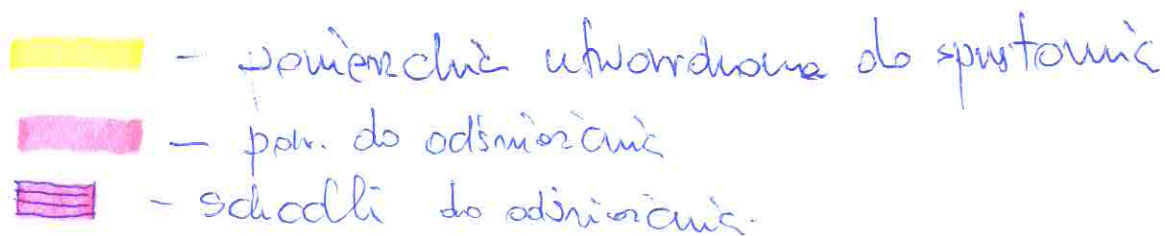 - powierzchnia utwardzona do sprzątania
- pow. do odśnieżania
- schodki do odśnieżania.